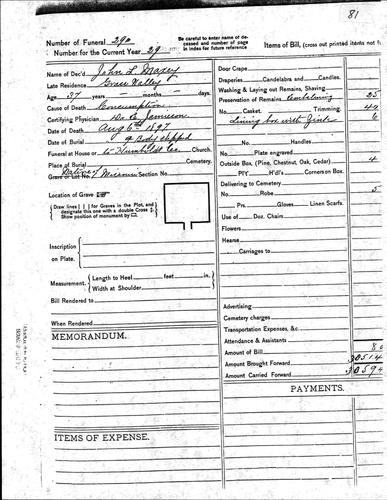 81
Number of Funeral 290
Number for the Current Year 29
Be carefull to enter name of deceased and number of page in index for future reference
Items of Bill, (cross out printed items not
Name of Dec'd John L. Maxey
Late Residence Grass Valley
Age 37 years months days.
Cause of Death Consumption
Certifying Physician Dr. Jamieson
Date of Death Aug 6th 1897
Date of Burial Body shipped
Funeral at House or to Humboldt Co. Church.
Place of Burial Cemetery.
Native of Missouri
Grave or Lot No. Section No.
Location of Grave
Draw lines for Graves in the Plot, and designate this one with a double Cross
Show position of monument by
Inscription
on Plate.
Measurement, Length to Heel feet in.
Width at Shoulder
Bill Rendered to
When Rendered
MEMORANDUM.
ITEMS OF EXPENSE.
Door Crape
Draperies Candelabra and Candles.
Washing & Laying out Remains, Shaving
Preservation of Remains Embalming 25
No. Casket. Trimming. 40
Lining box with Zinc 6
No. Handles
Plate engraved
Outside Box (Pine, Chestnut, Oak, Cedar) 4
H'd'ls Corners on Box.
Delivering to Cemetery
No. Robe 5
Prs. Gloves Linen Scarfs.
Use of Doz. Chairs
Flowers
Hearse
Carriages to
Advertising
Cemetery charges
Transportation Expenses, &c.
Attendance & Assistants
Amount of Bill 80
Amount Brought Forward 30514
Amount Carried Forward 30594
PAYMENTS.